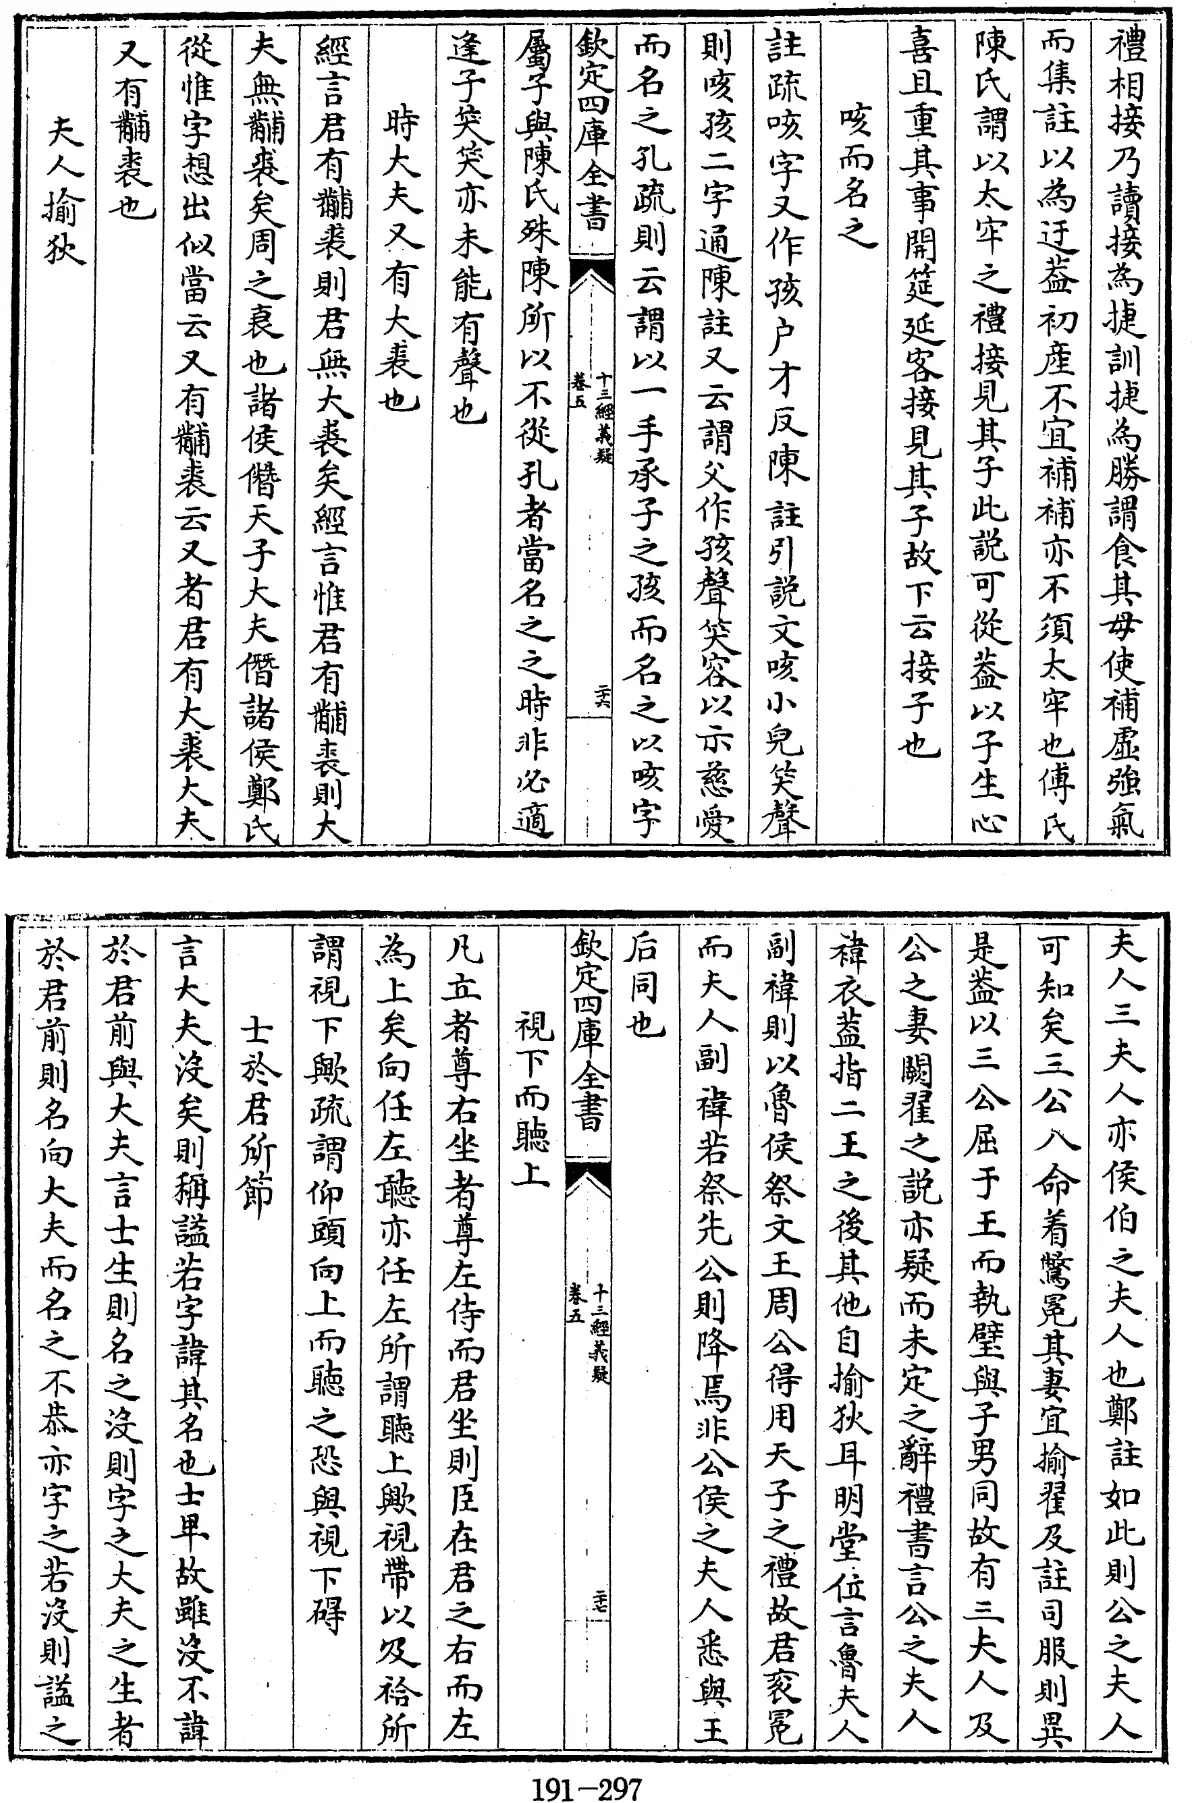 禮相接乃讀接為捷訓捷為勝謂食其母使補虛強氣
而集註以為迂葢初產不宜補補亦不須太牢也傅氏
陳氏謂以太牢之禮接見其子此説可從葢以子生心
喜且重其事開筵延客接見其子故下云接子也
咳而名之
註疏咳字又作孩户才反陳註引説文咳小兒笑聲
則咳孩二字通陳註又云謂父作孩聲笑容以示慈愛
而名之孔疏則云謂以一手承子之孩而名之以咳字
欽定四庫全書
十三經義疑
卷五
二十六
屬子與陳氏殊陳所以不從孔者當名之之時非必適
逢子笑笑亦未能有聲也
時大夫又有大裘也
經言君有黼裘則君無大裘矣經言惟君有黼裘則大
夫無黼裘矣周之衰也諸侯僭天子大夫僭諸侯鄭氏
從惟字想出似當云又有黼裘云又者君有大裘大夫
又有黼裘也
夫人揄狄
夫人三夫人亦侯伯之夫人也鄭註如此則公之夫人
可知矣三公八命着鷩冕其妻宜揄翟及註司服則異
是葢以三公屈于王而執璧與子男同故有三夫人及
公之妻闕翟之説亦疑而未定之辭禮書言公之夫人
褘衣葢指二王之後其他自揄狄耳明堂位言魯夫人
副褘則以魯侯祭文王周公得用天子之禮故君衮冕
而夫人副褘若祭先公則降焉非公侯之夫人悉與王
后同也
欽定四庫全書
十三經義疑
卷五
二十七
視下而聽上
凡立者尊右坐者尊左侍而君坐則臣在君之右而左
為上矣向任左聽亦任左所謂聽上歟視帶以及袷所
謂視下歟疏謂仰頭向上而聽之恐與視下碍
士於君所節
言大夫沒矣則稱謚若字諱其名也士卑故雖沒不諱
於君前與大夫言士生則名之沒則字之大夫之生者
於君前則名向大夫而名之不恭亦字之若沒則謚之
191-297